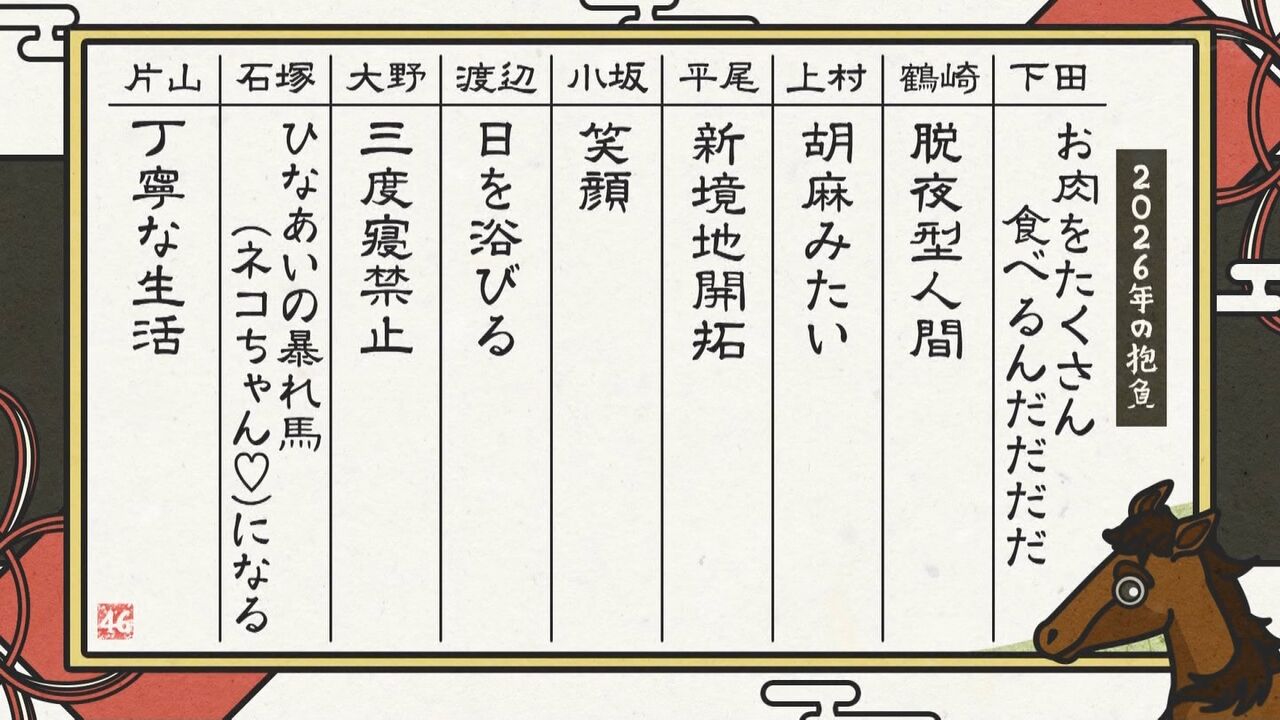 2026年の抱負
下田
お肉をたくさん
食べるんだだだだ
鶴崎
脱夜型人間
上村
胡麻みたい
平尾
新境地開拓
小坂
笑顔
渡辺
日を浴びる
大野
三度寝禁止
石塚
ひなあいの暴れ馬
(ネコちゃん♡)になる
片山
丁寧な生活
46